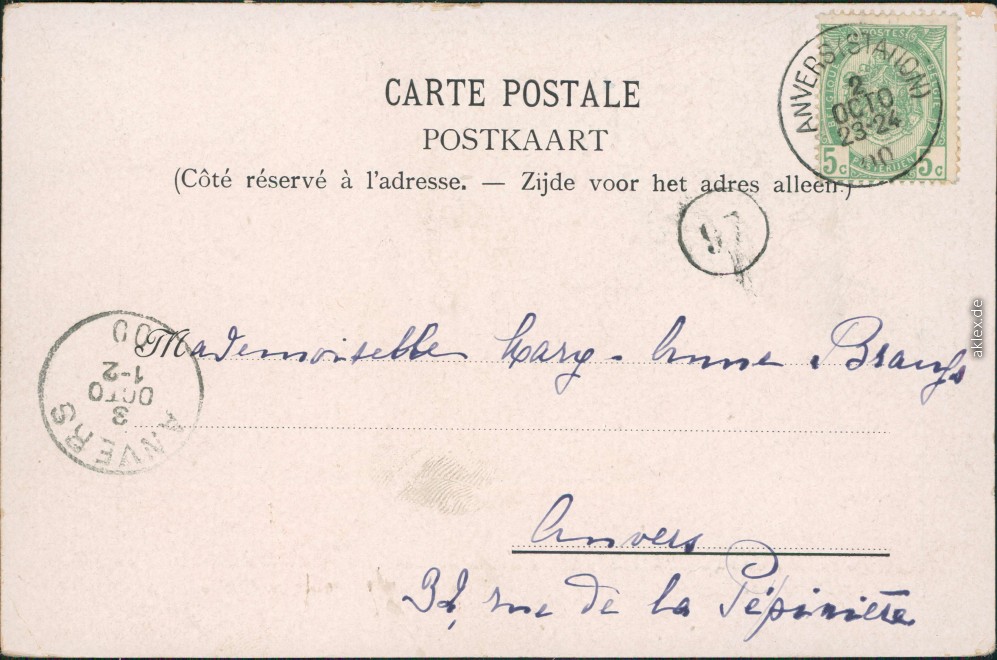 CARTE POSTALE
POSTKAART
(Côté réservé à l'adresse. — Zijde voor het adres alleen.)
ANVERS (STATION)
2
OCTO
23-24
00
POSTES
5c 5c
97
ANVERS
3
OCTO
1-2
00
Mademoiselle Mary-Anne
Anvers
rue de la Pépinière
aklex.de